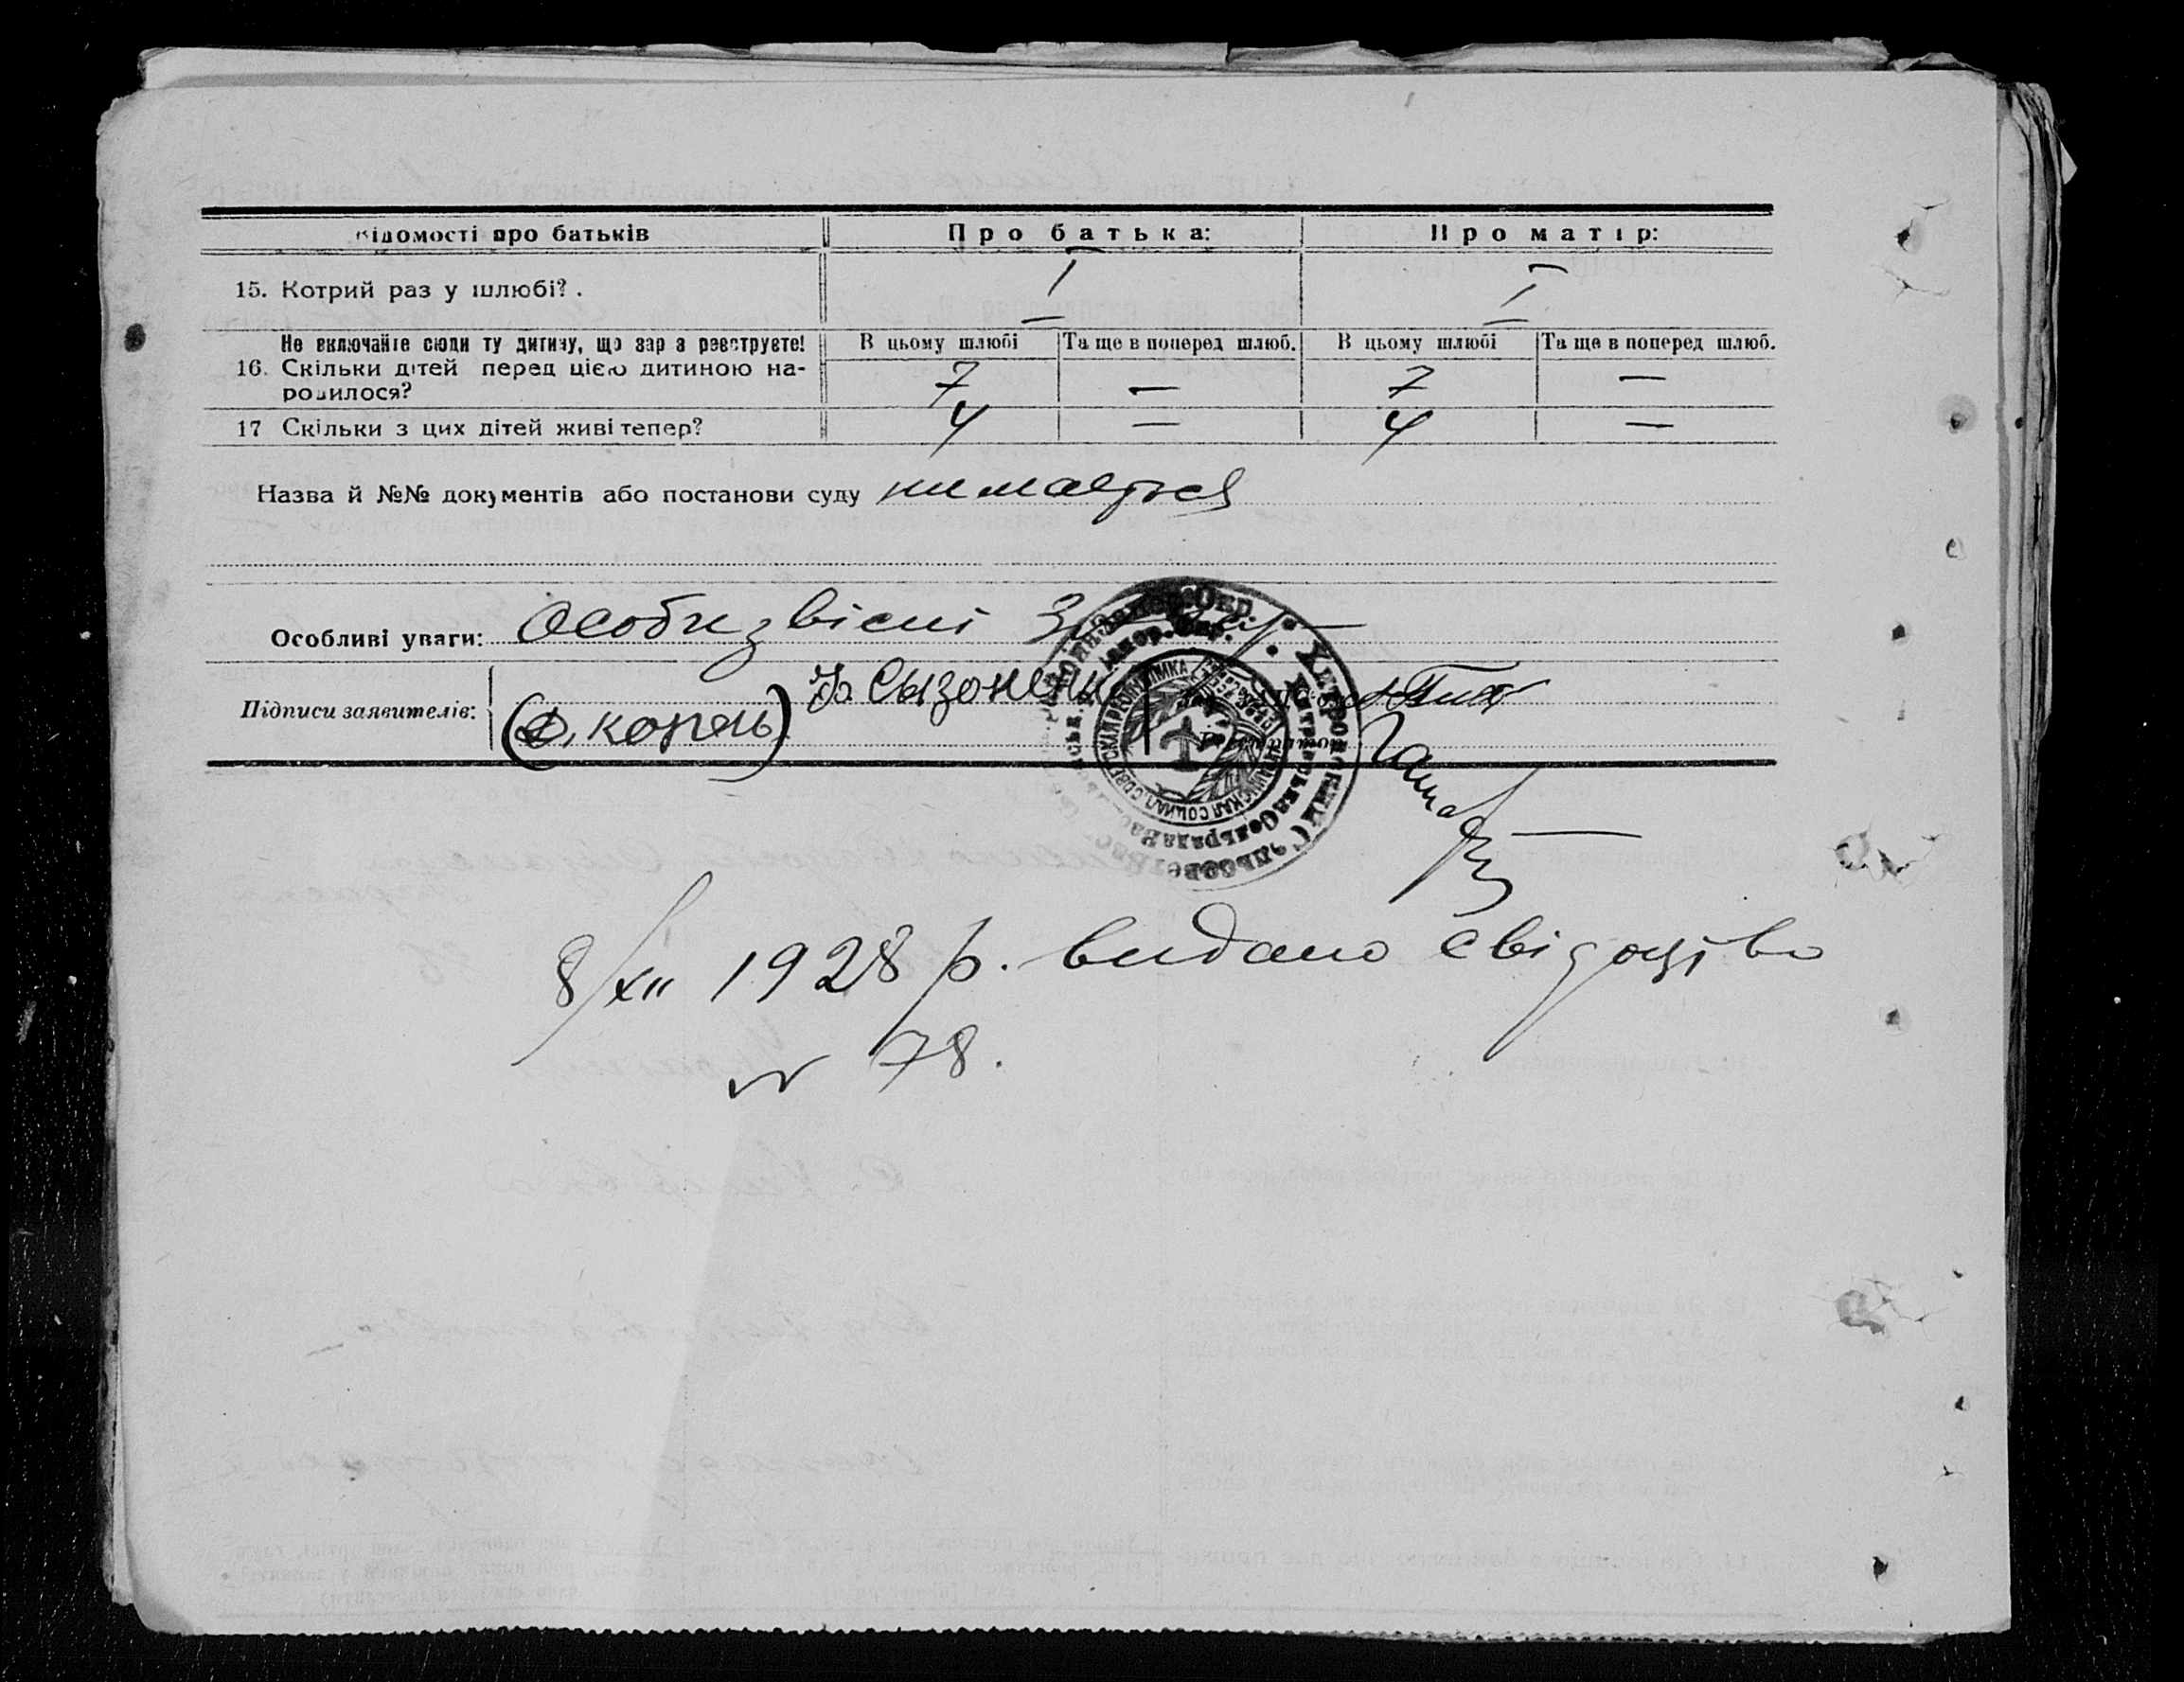 Відомості про батьків Про батька: Про матір:
15. Котрий раз у шлюбі? . I I
Не включайте сюди ту дитину, що зараз реєструєте! В цьому шлюбі Та ще в поперед шлюб. В цьому шлюбі Та ще в поперед шлюб.
16. Скільки дітей перед цією дитиною на-
родилося? 7 — 7 —
17 Скільки з цих дітей живі тепер? 4 — 4 —
Назва й №№ документів або постанови суду нимаеться
Особливі уваги: Особи звісні
Підписи заявителів: Ф Сызоненко
(Ф. корець)
8/XII 1928 р. видано свідоцтво
№ 78.